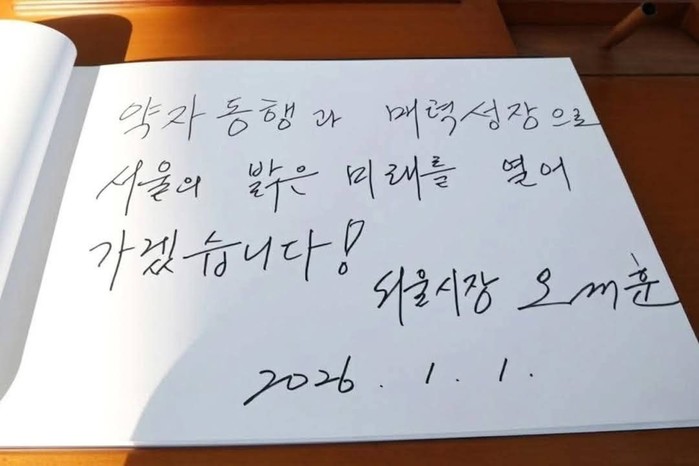 약자동행과 매력성장으로
서울의 밝은 미래를 열어
가겠습니다!
서울시장 오세훈
2026. 1. 1.